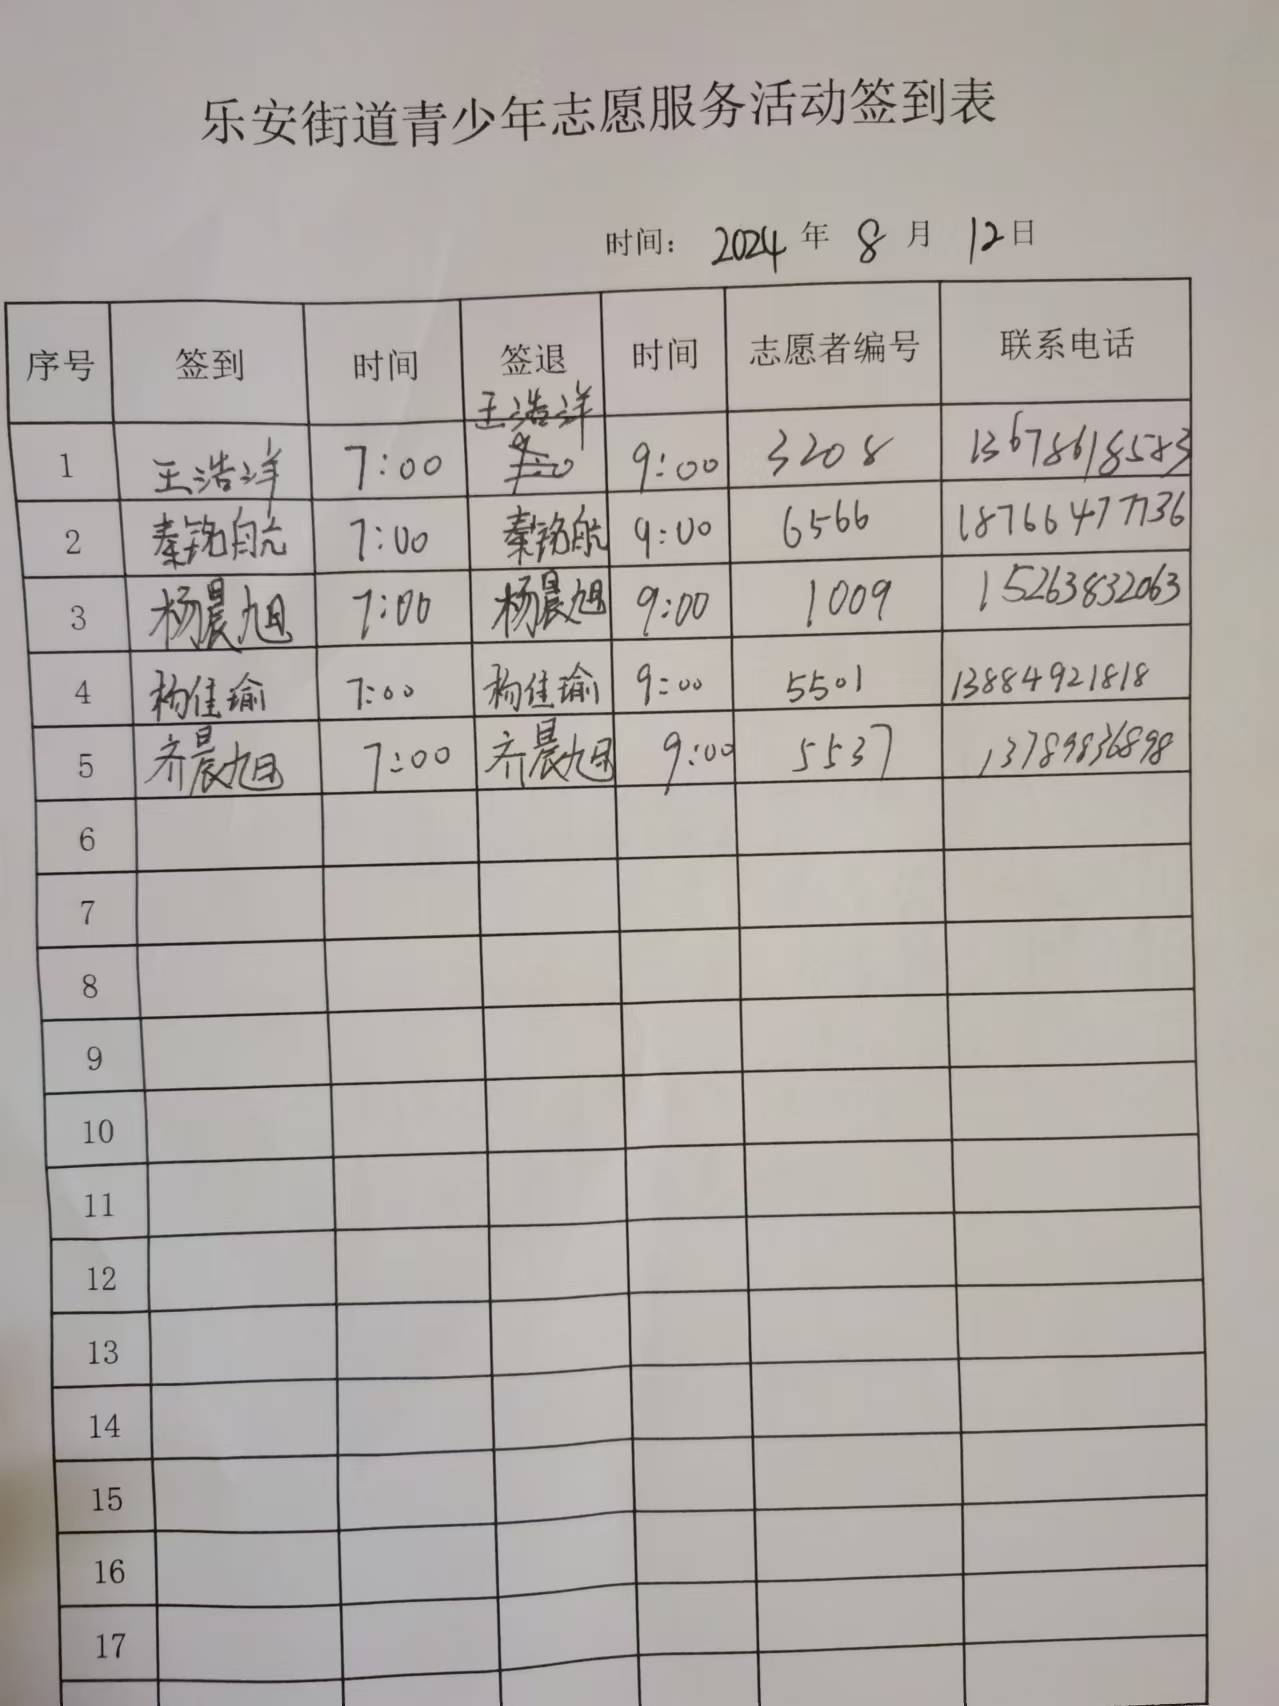 乐安街道青少年志愿服务活动签到表
时间： 2024 年 8 月 12 日
序号 签到 时间 签退 时间 志愿者编号 联系电话
1 王浩洋 7:00 王浩洋 9:00 3208 13678618583
2 秦铭航 7:00 秦铭航 9:00 6566 18766477736
3 杨晨旭 7:00 杨晨旭 9:00 1009 15263832063
4 杨佳瑜 7:00 杨佳瑜 9:00 5501 13884921818
5 齐晨旭 7:00 齐晨旭 9:00 5537 13789836898
6
7
8
9
10
11
12
13
14
15
16
17